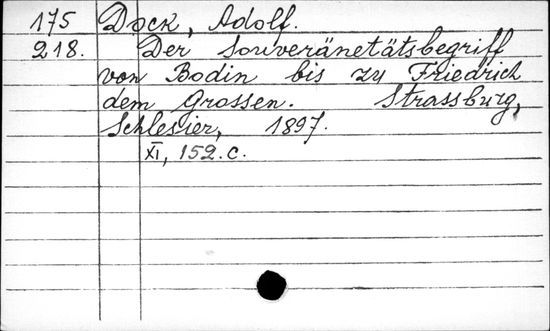 175 Dock, Adolf.
218. Der Souveränetätsbegriff
von Bodin bis zu Friedrich
dem Grossen. Strassburg,
Schlesier, 1897.
XI, 152.c.